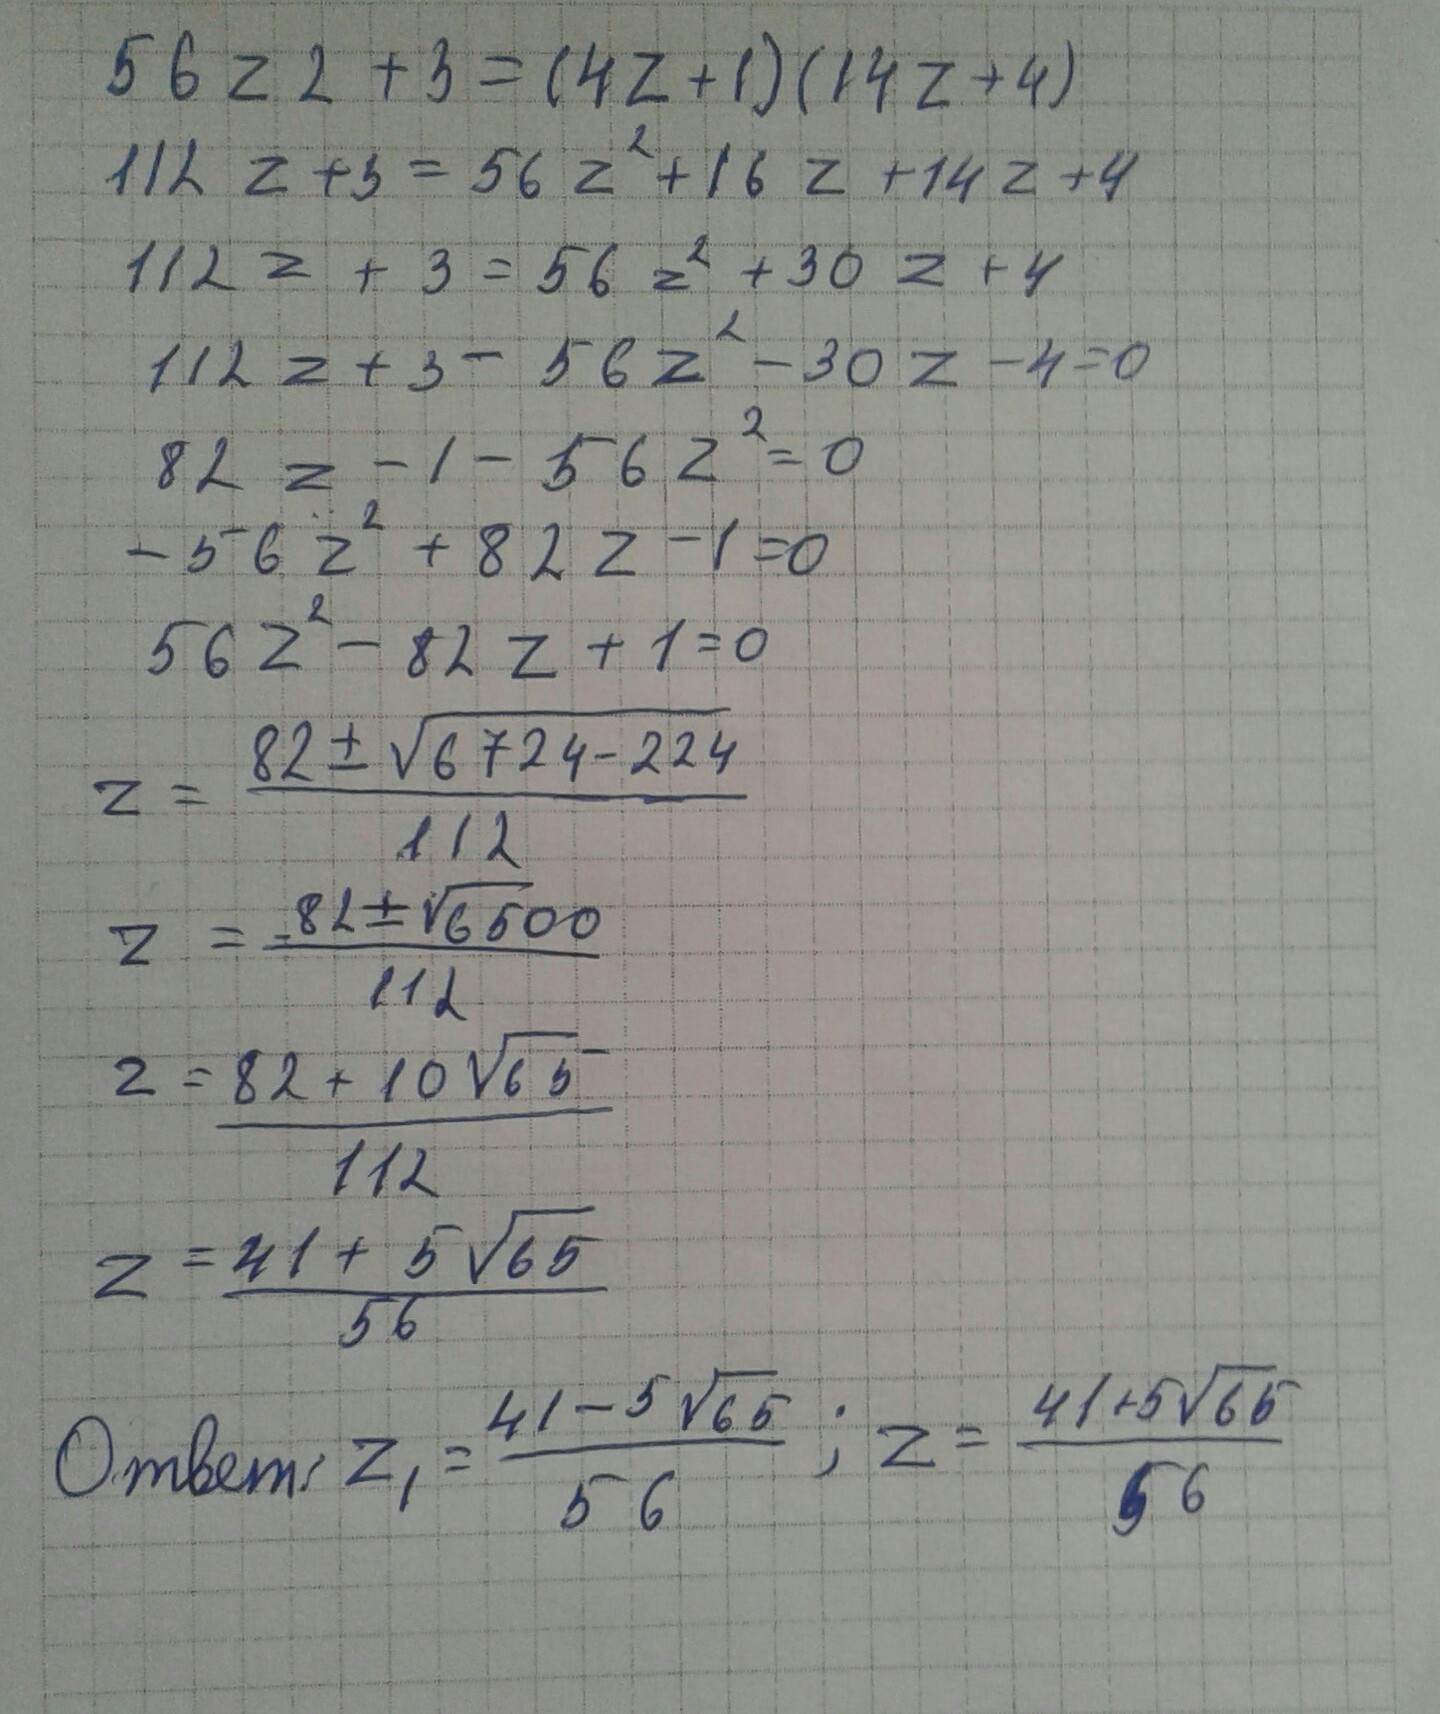 56z2+3=(4z+1)(14z+4)
112z+3=56z²+16z+14z+4
112z+3=56z²+30z+4
112z+3-56z²-30z-4=0
82z-1-56z²=0
-56z²+82z-1=0
56z²-82z+1=0
z=(82±√(6724-224))/112
z=(82±√6500)/112
z=(82+10√65)/112
z=(41+5√65)/56
Ответ: z₁=(41-5√65)/56; z=(41+5√65)/56